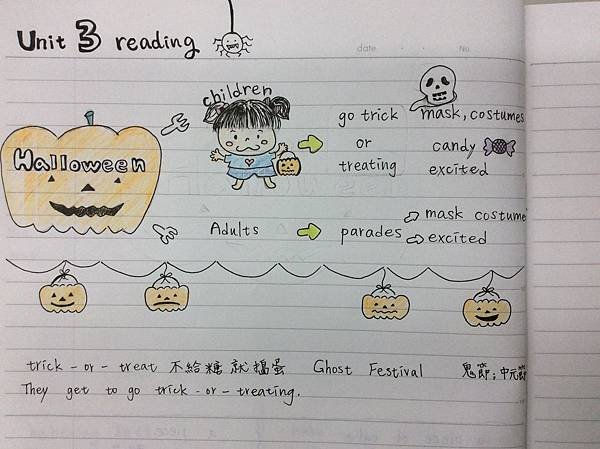 Unit 3 reading
date No.
children
go trick mask, costumes
or candy
treating excited
Halloween
mask costume
Adults parades
excited
trick-or-treat 不給糖就搗蛋 Ghost Festival 鬼節;中元節
They get to go trick-or-treating.